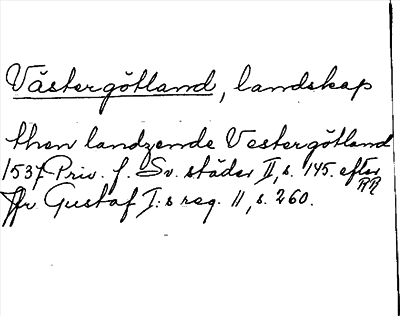 Västergötland, landskap
then landzende Vestergötland
1537 Priv. f. Sv. städer II, s. 145. efter RR
Gustaf I:s reg. 11, s. 260.